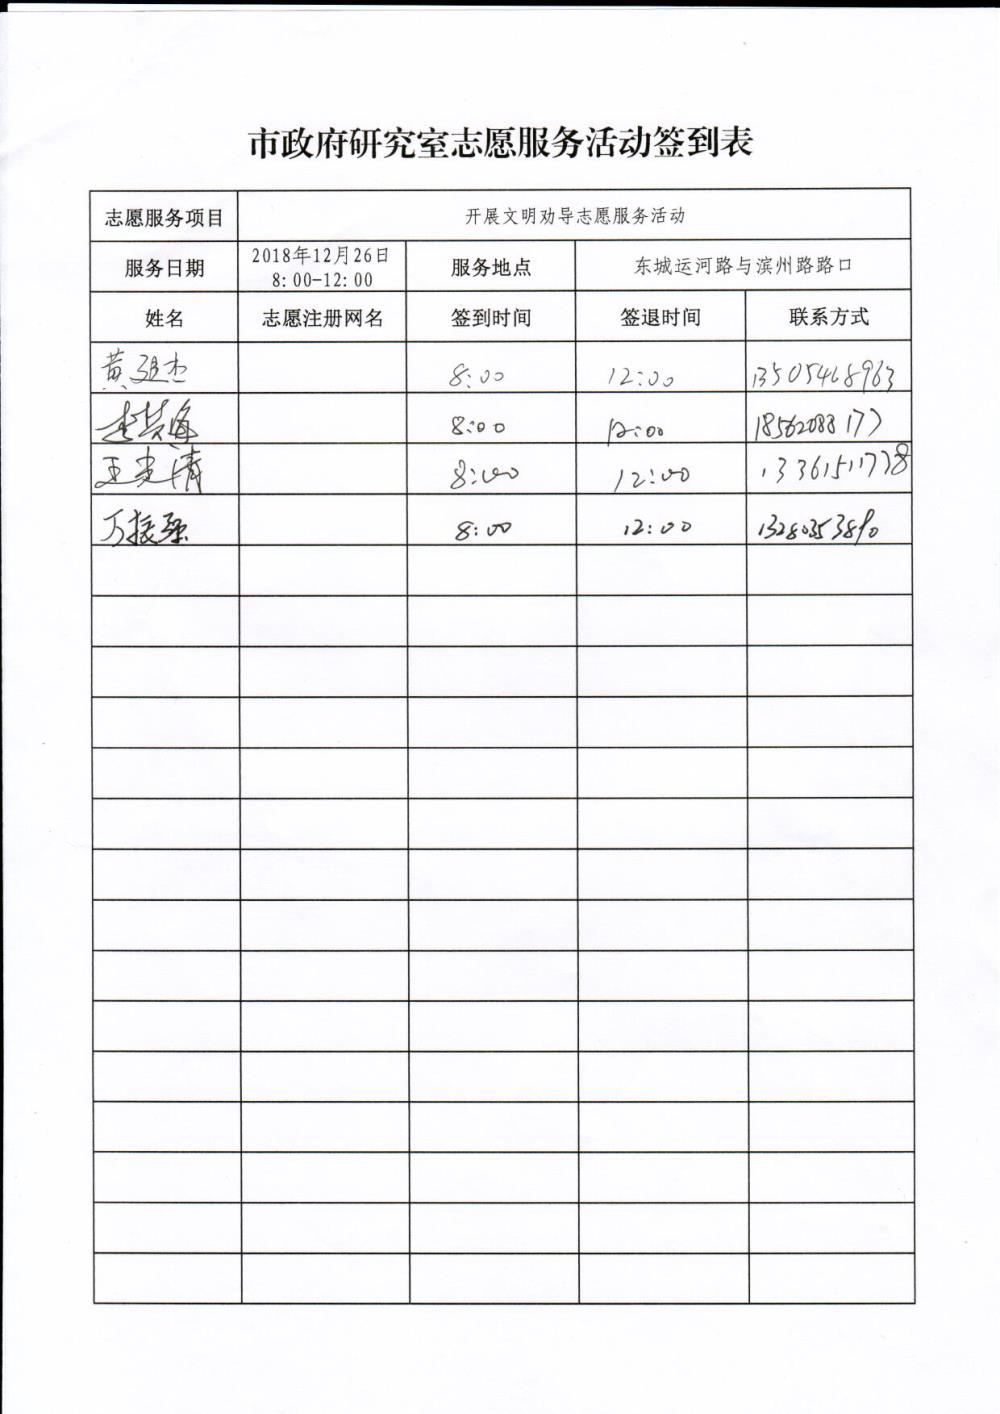 市政府研究室志愿服务活动签到表
志愿服务项目 开展文明劝导志愿服务活动
服务日期 2018年12月26日 8:00-12:00 服务地点 东城运河路与滨州路路口
姓名 志愿注册网名 签到时间 签退时间 联系方式
黄 杰 8:00 12:00 13505468963
8:00 12:00 18562088177
王光清 8:00 12:00 13361511778
万振强 8:00 12:00 13280353890